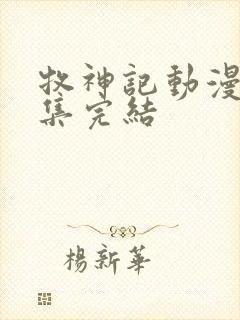 牧神記動漫
集完結
楊新華